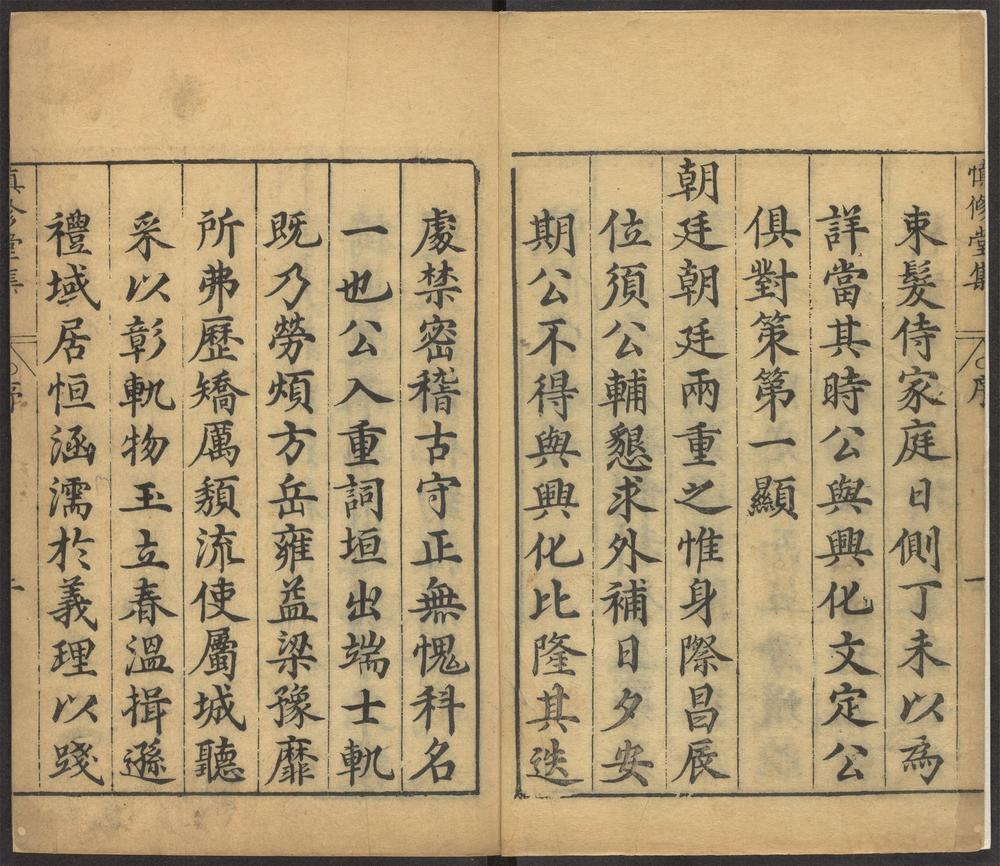 慎修堂集 序 一
束髮侍家庭日側丁未以為
詳當其時公與興化文定公
俱對策第一顯
朝廷朝廷兩重之惟身際昌辰
位須公輔懇求外補日夕安
期公不得與興化比隆其迭
處禁密稽古守正無愧科名
一也公入重詞垣出端士軌
既乃勞煩方岳雍益梁豫靡
所弗歷矯厲頹流使屬城聽
采以彰軌物玉立春溫揖遜
禮域居恒涵濡於義理以踐